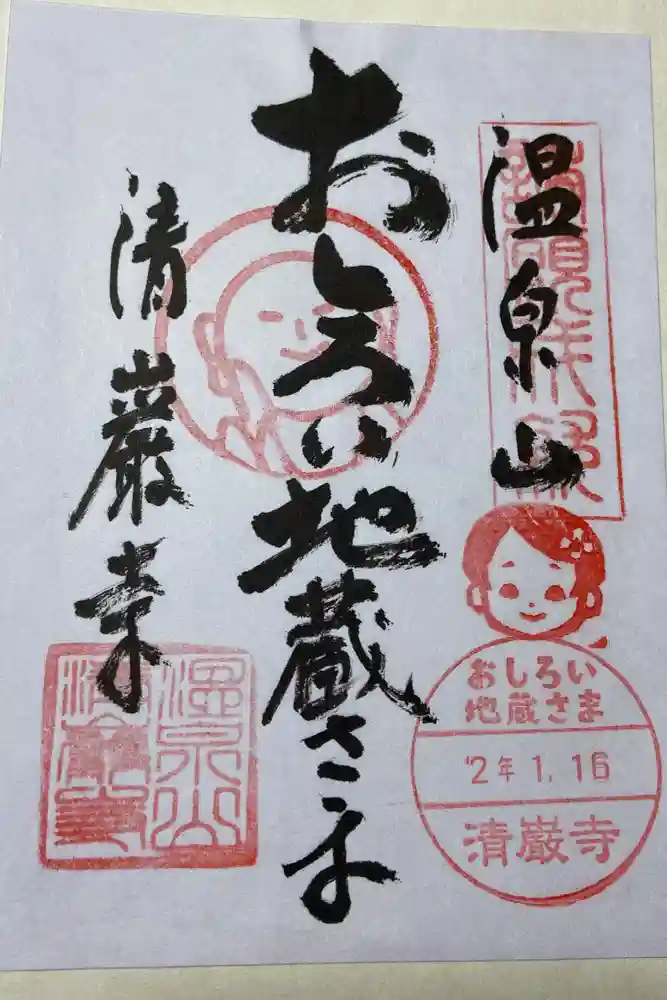 温泉山
おしろい地蔵さま
清巌寺
おしろい
地蔵さま
'2年 1.16
清巌寺
温泉山
清巌寺